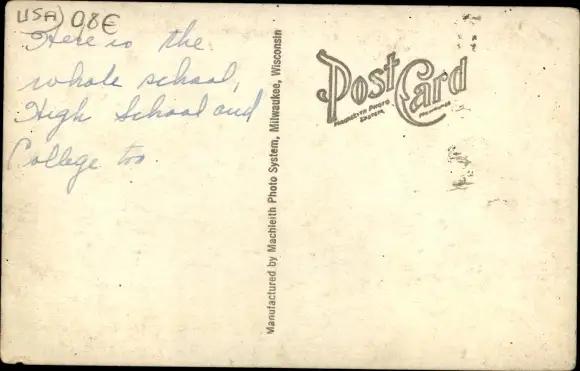 USA 08€
Here is the
whole school,
High School and
College too
Manufactured by Machleith Photo System, Milwaukee, Wisconsin
Post Card
MACHLEITH PHOTO
SYSTEM